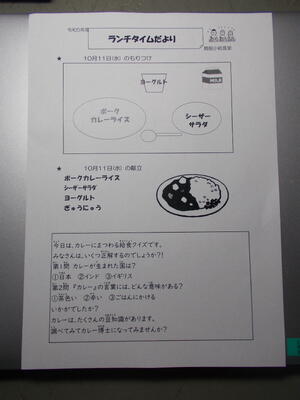 令和5年度
ランチタイムだより
10月11日(水) のもりつけ
ヨーグルト
MILK
ポーク
カレーライス
シーザー
サラダ
★ 10月11日(水) の献立
ポークカレーライス
シーザーサラダ
ヨーグルト
ぎゅうにゅう
今日は、カレーにまつわる給食クイズです。
みなさんは、いくつ正解するのでしょうか?!
第1問 カレーが生まれた国は?
①日本 ②インド ③イギリス
第2問 『カレー』の言葉には、どんな意味がある?
①茶色い ②辛い ③ごはんにかける
いかがでしたか?
カレーは、たくさんの豆知識があります。
調べてみてカレー博士になってみませんか?